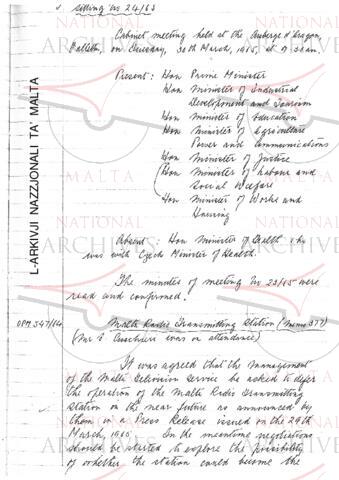 Sitting No 24/65
Cabinet meeting held at the Auberge d'Aragon,
Valletta, on Tuesday, 30th March, 1965, at 9.30am.
Present: Hon Prime Minister
Hon Minister of Industrial
Development and Tourism
Hon Minister of Education
Hon Minister of Agriculture
Power and Communications
Hon Minister of Justice
Hon Minister of Labour and
Social Welfare
Hon Minister of Works and
Housing
Absent: Hon Minister of Health who
was with Czech Minister of Health.
The minutes of meeting No 23/65 were
read and confirmed.
OPM 547/64
Malta Radio Transmitting Station (Memo 377)
(Mr was in attendance)
It was agreed that the management
of the Malta Television Service be asked to defer
the operation of the Malta Radio Transmitting
Station in the near future as announced by
them in a Press Release issued on the 29th
March 1965. In the meantime negotiations
should be started to explore the possibility
of whether the station could become the
L-ARKIVJI NAZZJONALI TA' MALTA
NATIONAL
ARCHIVES
MALTA